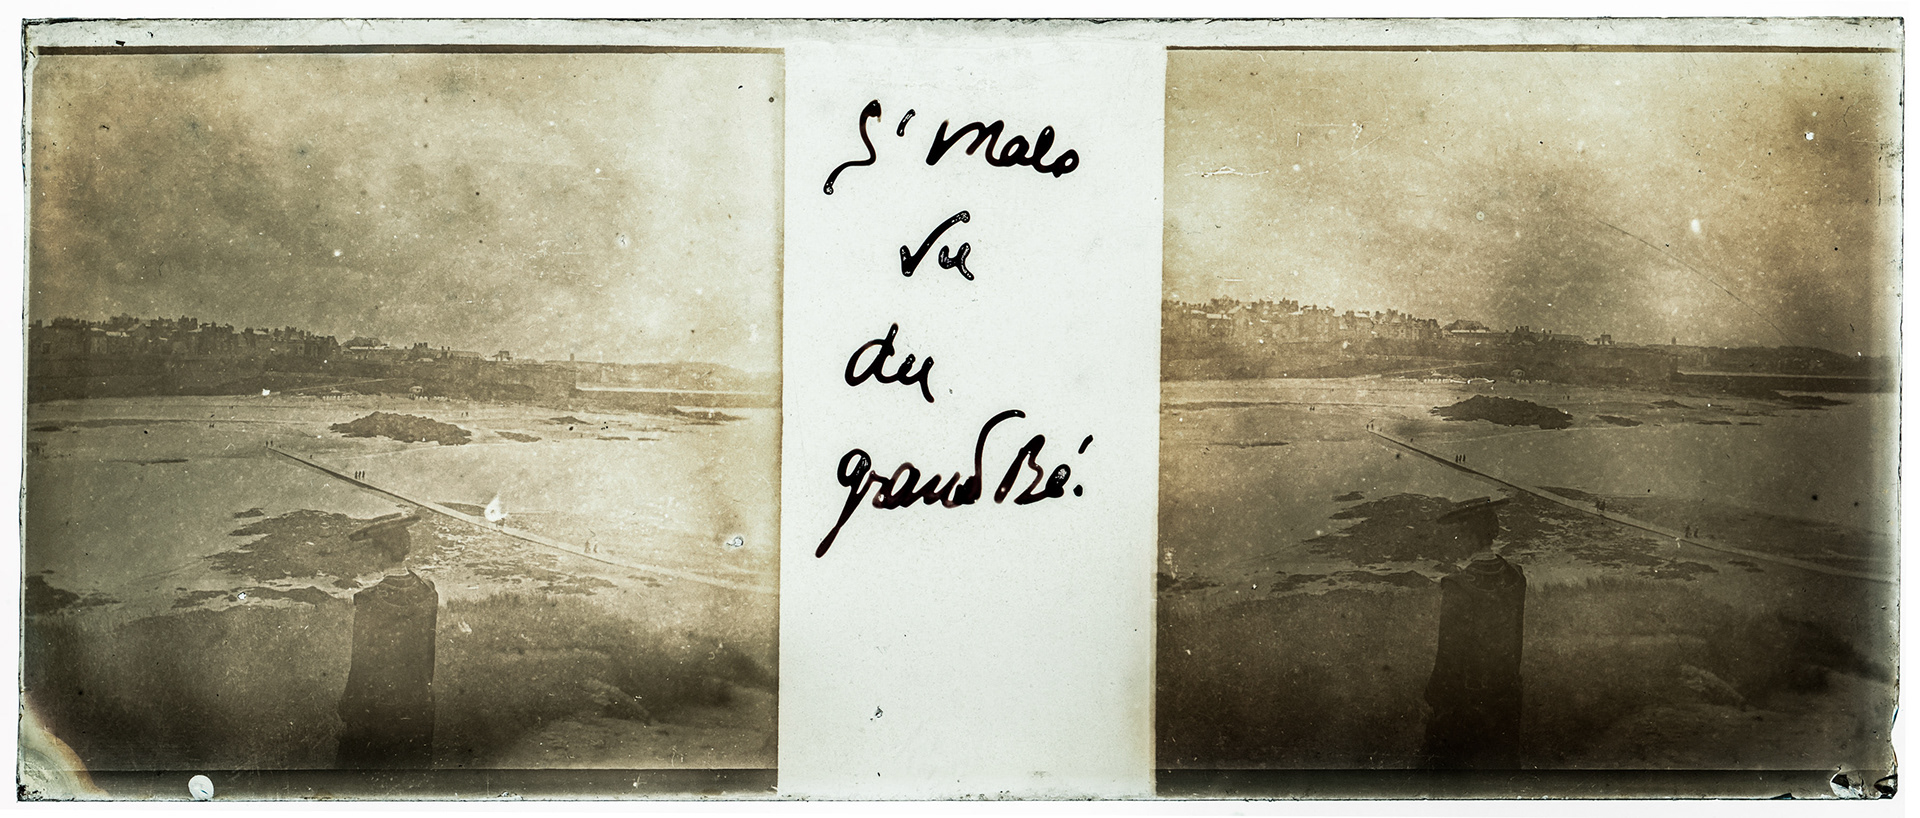 S' Malo
vu
du
grand Bé.